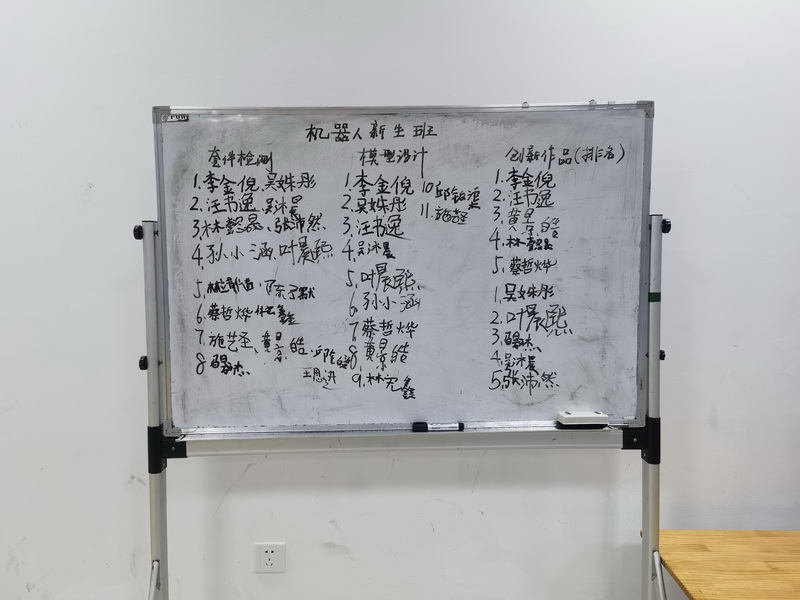 机器人新生班
套件检测
1.李金倪、吴姝彤
2.汪书逸、吴沐晨
3.林懿晟、张沛然
4.孙小涵、叶晨熙
5.
6.蔡哲烨、林冗鑫
7.施艺圣、黄景皓、
王思进
8.杰
模型设计
1.李金倪
2.吴姝彤
3.汪书逸
4.吴沐晨
5.叶晨熙
6.孙小涵
7.蔡哲烨
8.黄景皓
9.林冗鑫
10.邱
11.施艺圣
创新作品(排名)
1.李金倪
2.汪书逸
3.黄景皓
4.林懿晟
5.蔡哲烨
1.吴姝彤
2.叶晨熙
3.杰
4.吴沐晨
5.张沛然